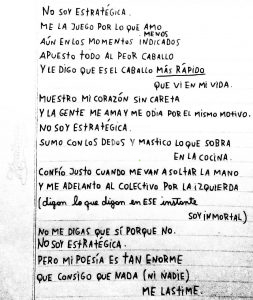 NO SOY ESTRATÉGICA.
ME LA JUEGO POR LO QUE AMO
AÚN EN LOS MOMENTOS MENOS INDICADOS
APUESTO TODO AL PEOR CABALLO
Y LE DIGO QUE ES EL CABALLO MÁS RÁPIDO
QUE VI EN MI VIDA.
MUESTRO MI CORAZÓN SIN CARETA
Y LA GENTE ME AMA Y ME ODIA POR EL MISMO MOTIVO.
NO SOY ESTRATÉGICA.
SUMO CON LOS DEDOS Y MASTICO LO QUE SOBRA
EN LA COCINA.
CONFÍO JUSTO CUANDO ME VAN A SOLTAR LA MANO
Y ME ADELANTO AL COLECTIVO POR LA IZQUIERDA
(digan lo que digan en ESE instante
SOY INMORTAL)
NO ME DIGAS QUE SÍ PORQUE NO.
NO SOY ESTRATÉGICA.
PERO MI POESÍA ES TAN ENORME
QUE CONSIGO QUE NADA (NI NADIE)
ME LASTIME.